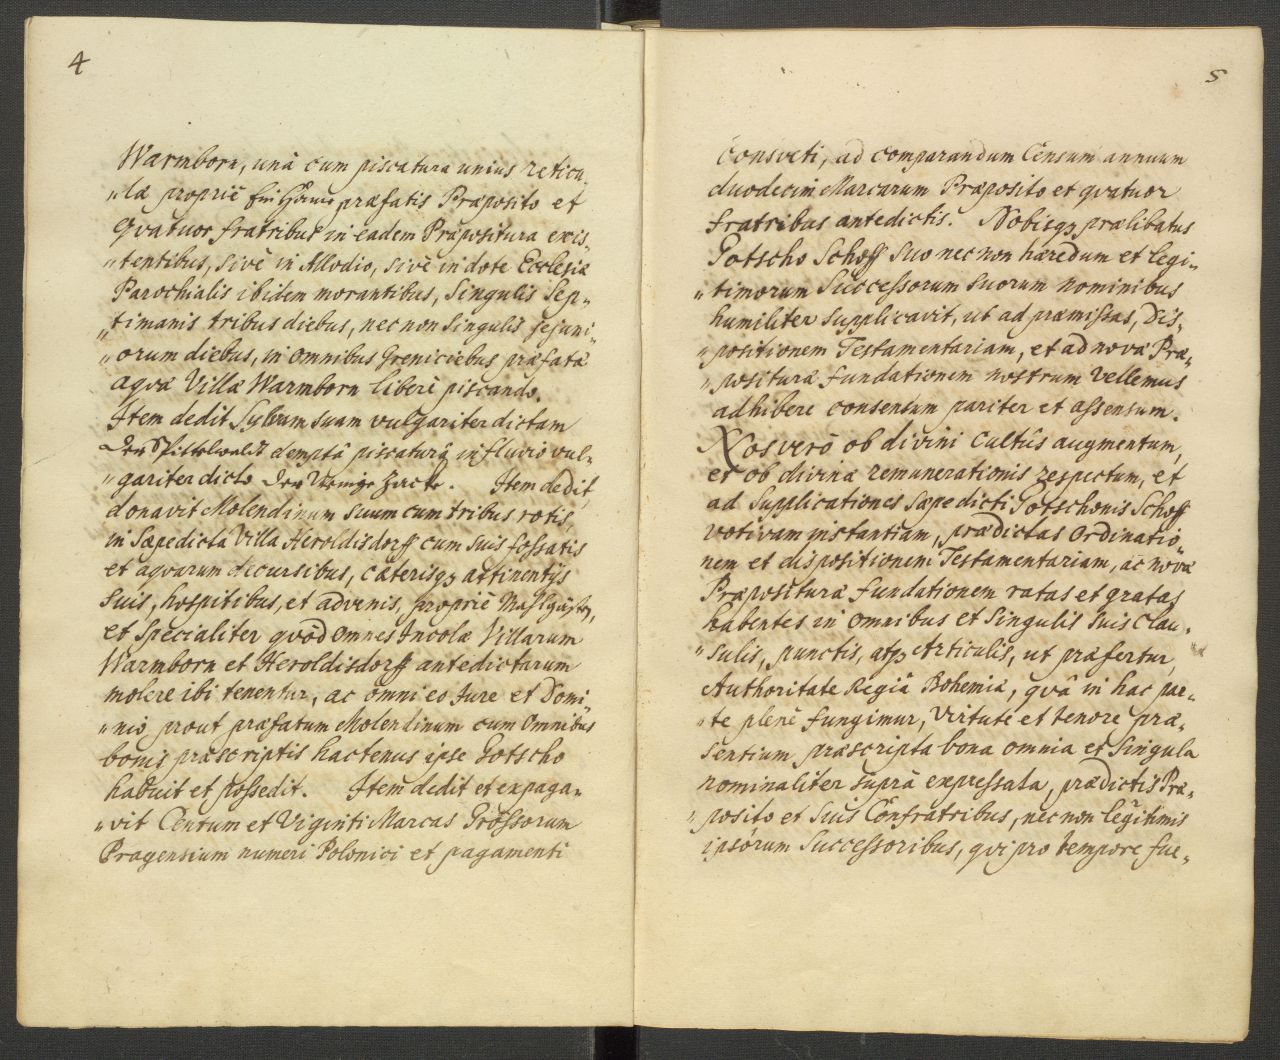 4
Warmborn, unà cum piscatura unius reticu
„læ propriè Ein Hamr præfatis Præposito et
Qvatuor fratribus in eadem Præpositura exis-
„tentibus, sivè in Allodio, sivè in dote Ecclesiæ
Parochialis ibidem morantibus, Singulis Sep-
„timanis tribus diebus, nec non Singulis jejuni-
„orum diebus, in omnibus Greniciebus præfatæ
aqvæ Villæ Warmborn liberè piscando.
Item dedit Sylvam suam vulgariter dictam
Der Spittelwaldt demptâ piscaturâ in fluvio vul-
„gariter dicto Der Wenige Zacke. Item dedit,
donavit Molendinum suum cum tribus rotis,
in Sæpedicta Villa Heroldisdorff cum suis fossatis
et aqvarum decursibus, cæterisqꝫ attinentijs
Suis, hospitibus, et advenis, propriè Mahlgästen,
et Specialiter qvòd omnes Incolæ Villarum
Warmborn et Heroldisdorff antedictarum
molere ibi tenentur, ac omni eo Jure et Domi-
„nio, prout præfatum Molendinum cum Omnibus
bonis præscriptis hactenus ipse Gotscho
habuit et possedit. Item dedit et expaga-
„vit Centum et Viginti Marcas Grossorum
Pragensium numeri Polonici et pagamenti
5
Consveti, ad comparandum Censum annuum
duodecim Marcarum Præposito et qvatuor
fratribus antedictis. Nobisqꝫ prælibatus
Gotscho Schoff Suo nec non hæredum et legi-
„timorum Successorum suorum nominibus
humiliter supplicavit, ut ad præmissas, Dis-
„positionem Testamentariam, et ad novæ Præ-
„posituræ fundationem nostrum vellemus
adhibere consensum pariter et assensum.
Nos verò ob divini Cultûs augmentum,
et ob divinæ remunerationis respectum, et
ad Supplicationes Sæpedicti Gotschonis Schoff
votivam instantiam, prædictas Ordinatio-
nem et dispositionem Testamentariam, ac novæ
Præposituræ fundationem ratas et gratas
habentes in omnibus et Singulis suis Clau-
„sulis, punctis, atqꝫ Articulis, ut præfertur,
Authoritate Regiâ Bohemiæ, qvâ in hac par-
„te plenè fungimur, Virtute et tenore præ-
sentium præscripta bona omnia et Singula
nominaliter suprà expressata, prædictis Præ-
„posito et Suis Confratribus, nec non legitimis
ipsorum Successoribus, qvi pro tempore fue-